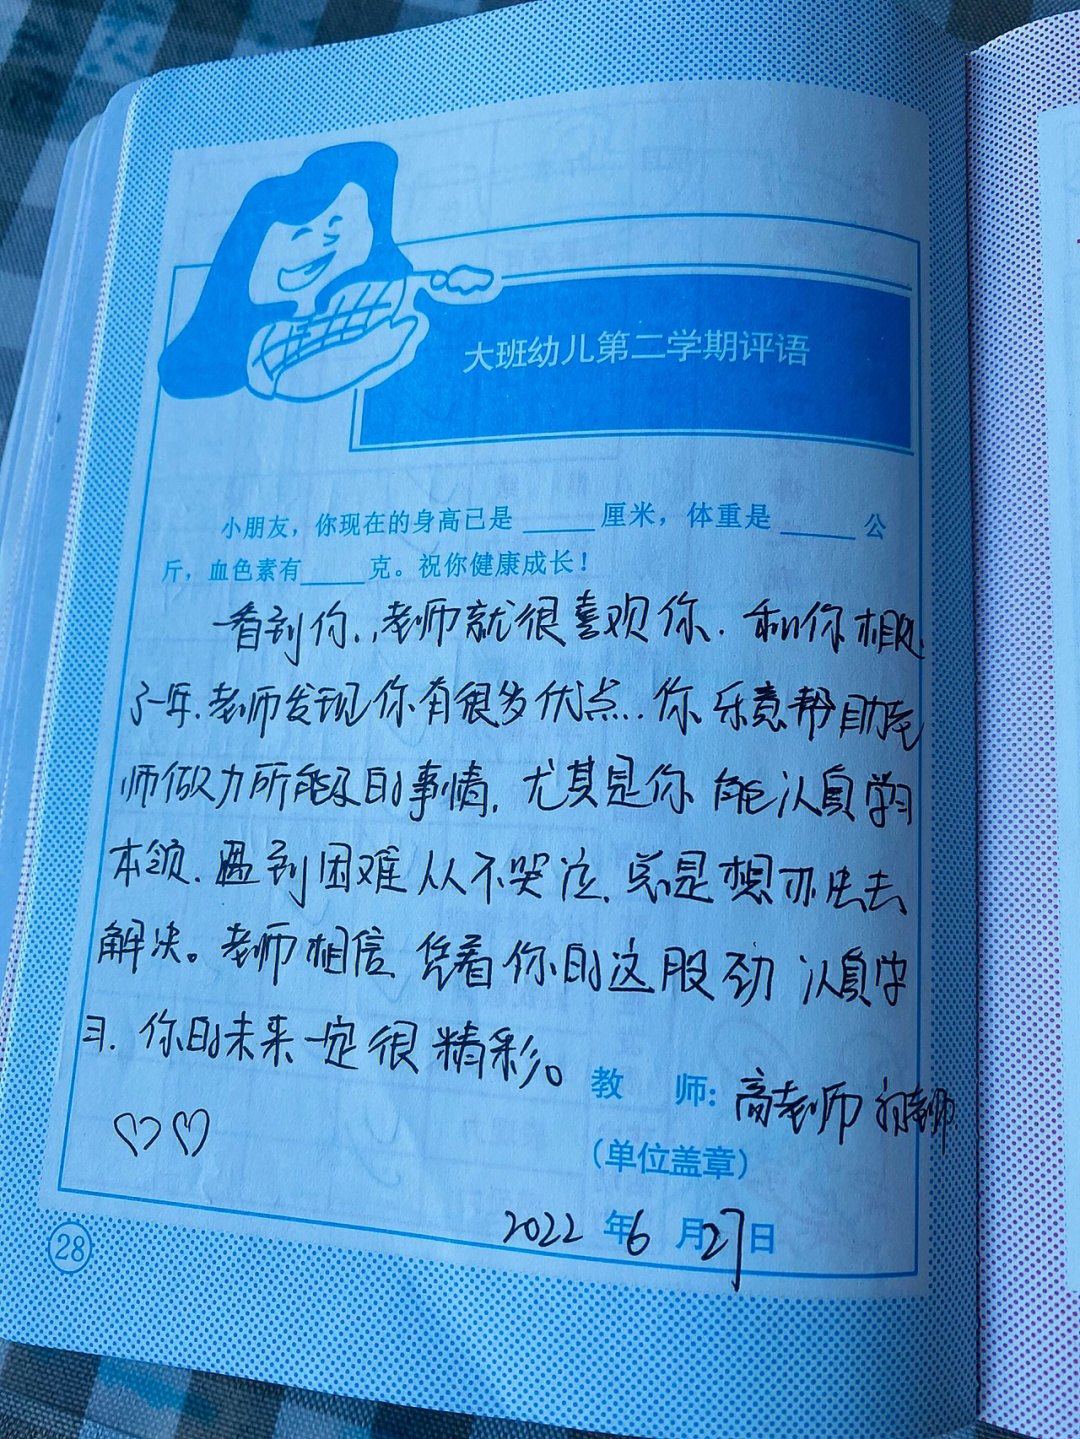 大班幼儿第二学期评语
小朋友，你现在的身高已是 厘米，体重是 公
斤，血色素有 克。祝你健康成长！
一看到你，老师就很喜欢你，和你相处
了一年，老师发现你有很多优点，你乐意帮助老
师做力所能及的事情，尤其是你能认真学习
本领，遇到困难从不哭泣，总是想办法去
解决。老师相信 凭着你的这股劲 认真学
习，你的未来一定很精彩。
教 师：高老师 老师
（单位盖章）
2022 年 6 月 27 日
28